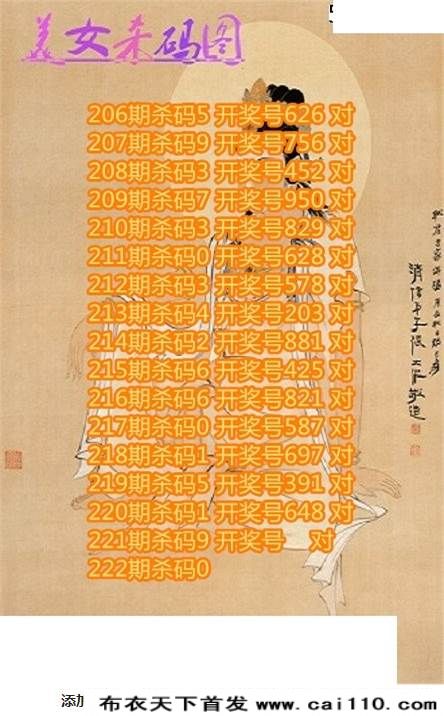 美女杀码图
206期杀码5 开奖号626 对
207期杀码9 开奖号756 对
208期杀码3 开奖号452 对
209期杀码7 开奖号950 对
210期杀码3 开奖号829 对
211期杀码0 开奖号628 对
212期杀码3 开奖号578 对
213期杀码4 开奖号203 对
214期杀码2 开奖号881 对
215期杀码6 开奖号425 对
216期杀码6 开奖号821 对
217期杀码0 开奖号587 对
218期杀码1 开奖号697 对
219期杀码5 开奖号391 对
220期杀码1 开奖号648 对
221期杀码9 开奖号 对
222期杀码0
布衣天下首发 www.cai110.com